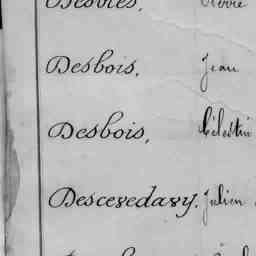 Desbois, Jean
Desbois, Célestin
Descevedavy, Julien